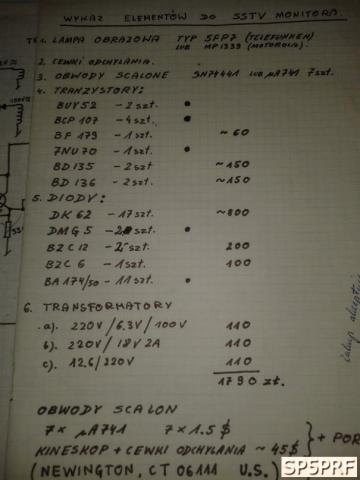 WYKAZ ELEMENTÓW DO SSTV MONITORA.
1. LAMPA OBRAZOWA TYP 5FP7 (TELEFUNKEN)
LUB MP1339 (MOTOROLA).
2. CEWKI ODCHYLANIA.
3. OBWODY SCALONE SN74441 LUB μA741 7szt.
4. TRANZYSTORY:
BUY52 - 2szt. •
BCP107 - 4szt. •
BF 179 - 1szt. ~60
7NU70 - 1szt. •
BD 135 - 2szt ~150
BD 136 - 2szt. ~150
5. DIODY:
DK 62 - 17szt. ~800
DMG 5 - szt. •
BZC 12 - szt. 200
BZC 6 - 1szt. 100
BA 174/50 - 11szt. •
6. TRANSFORMATORY
a). 220V/6.3V/100V 110
b). 220V/18V 2A 110
c). 12.6/220V 110
1790 zł.
OBWODY SCALON
7× μA741 7×1.5$
KINESKOP + CEWKI ODCHYLANIA ~45$ } + POR
(NEWINGTON, CT 06111 U.S.)
SP5PRF